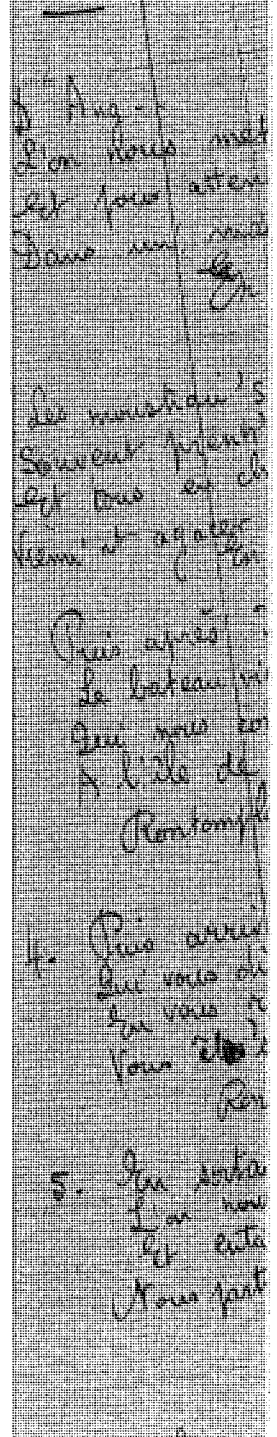 Aug
L'on nous met
Et pour atten
Dans un
Les moustiqu's
Souvent prenn'
Et tous en ch
Vienn't agacer
Puis après
Le bateau vi
Qui nous co
A l'île de
Rontompl
4. Puis arriv
Qui vous di
En vous r
Vous êt's
Ron
5. En sorta
L'on nou
Et enta
Nous part